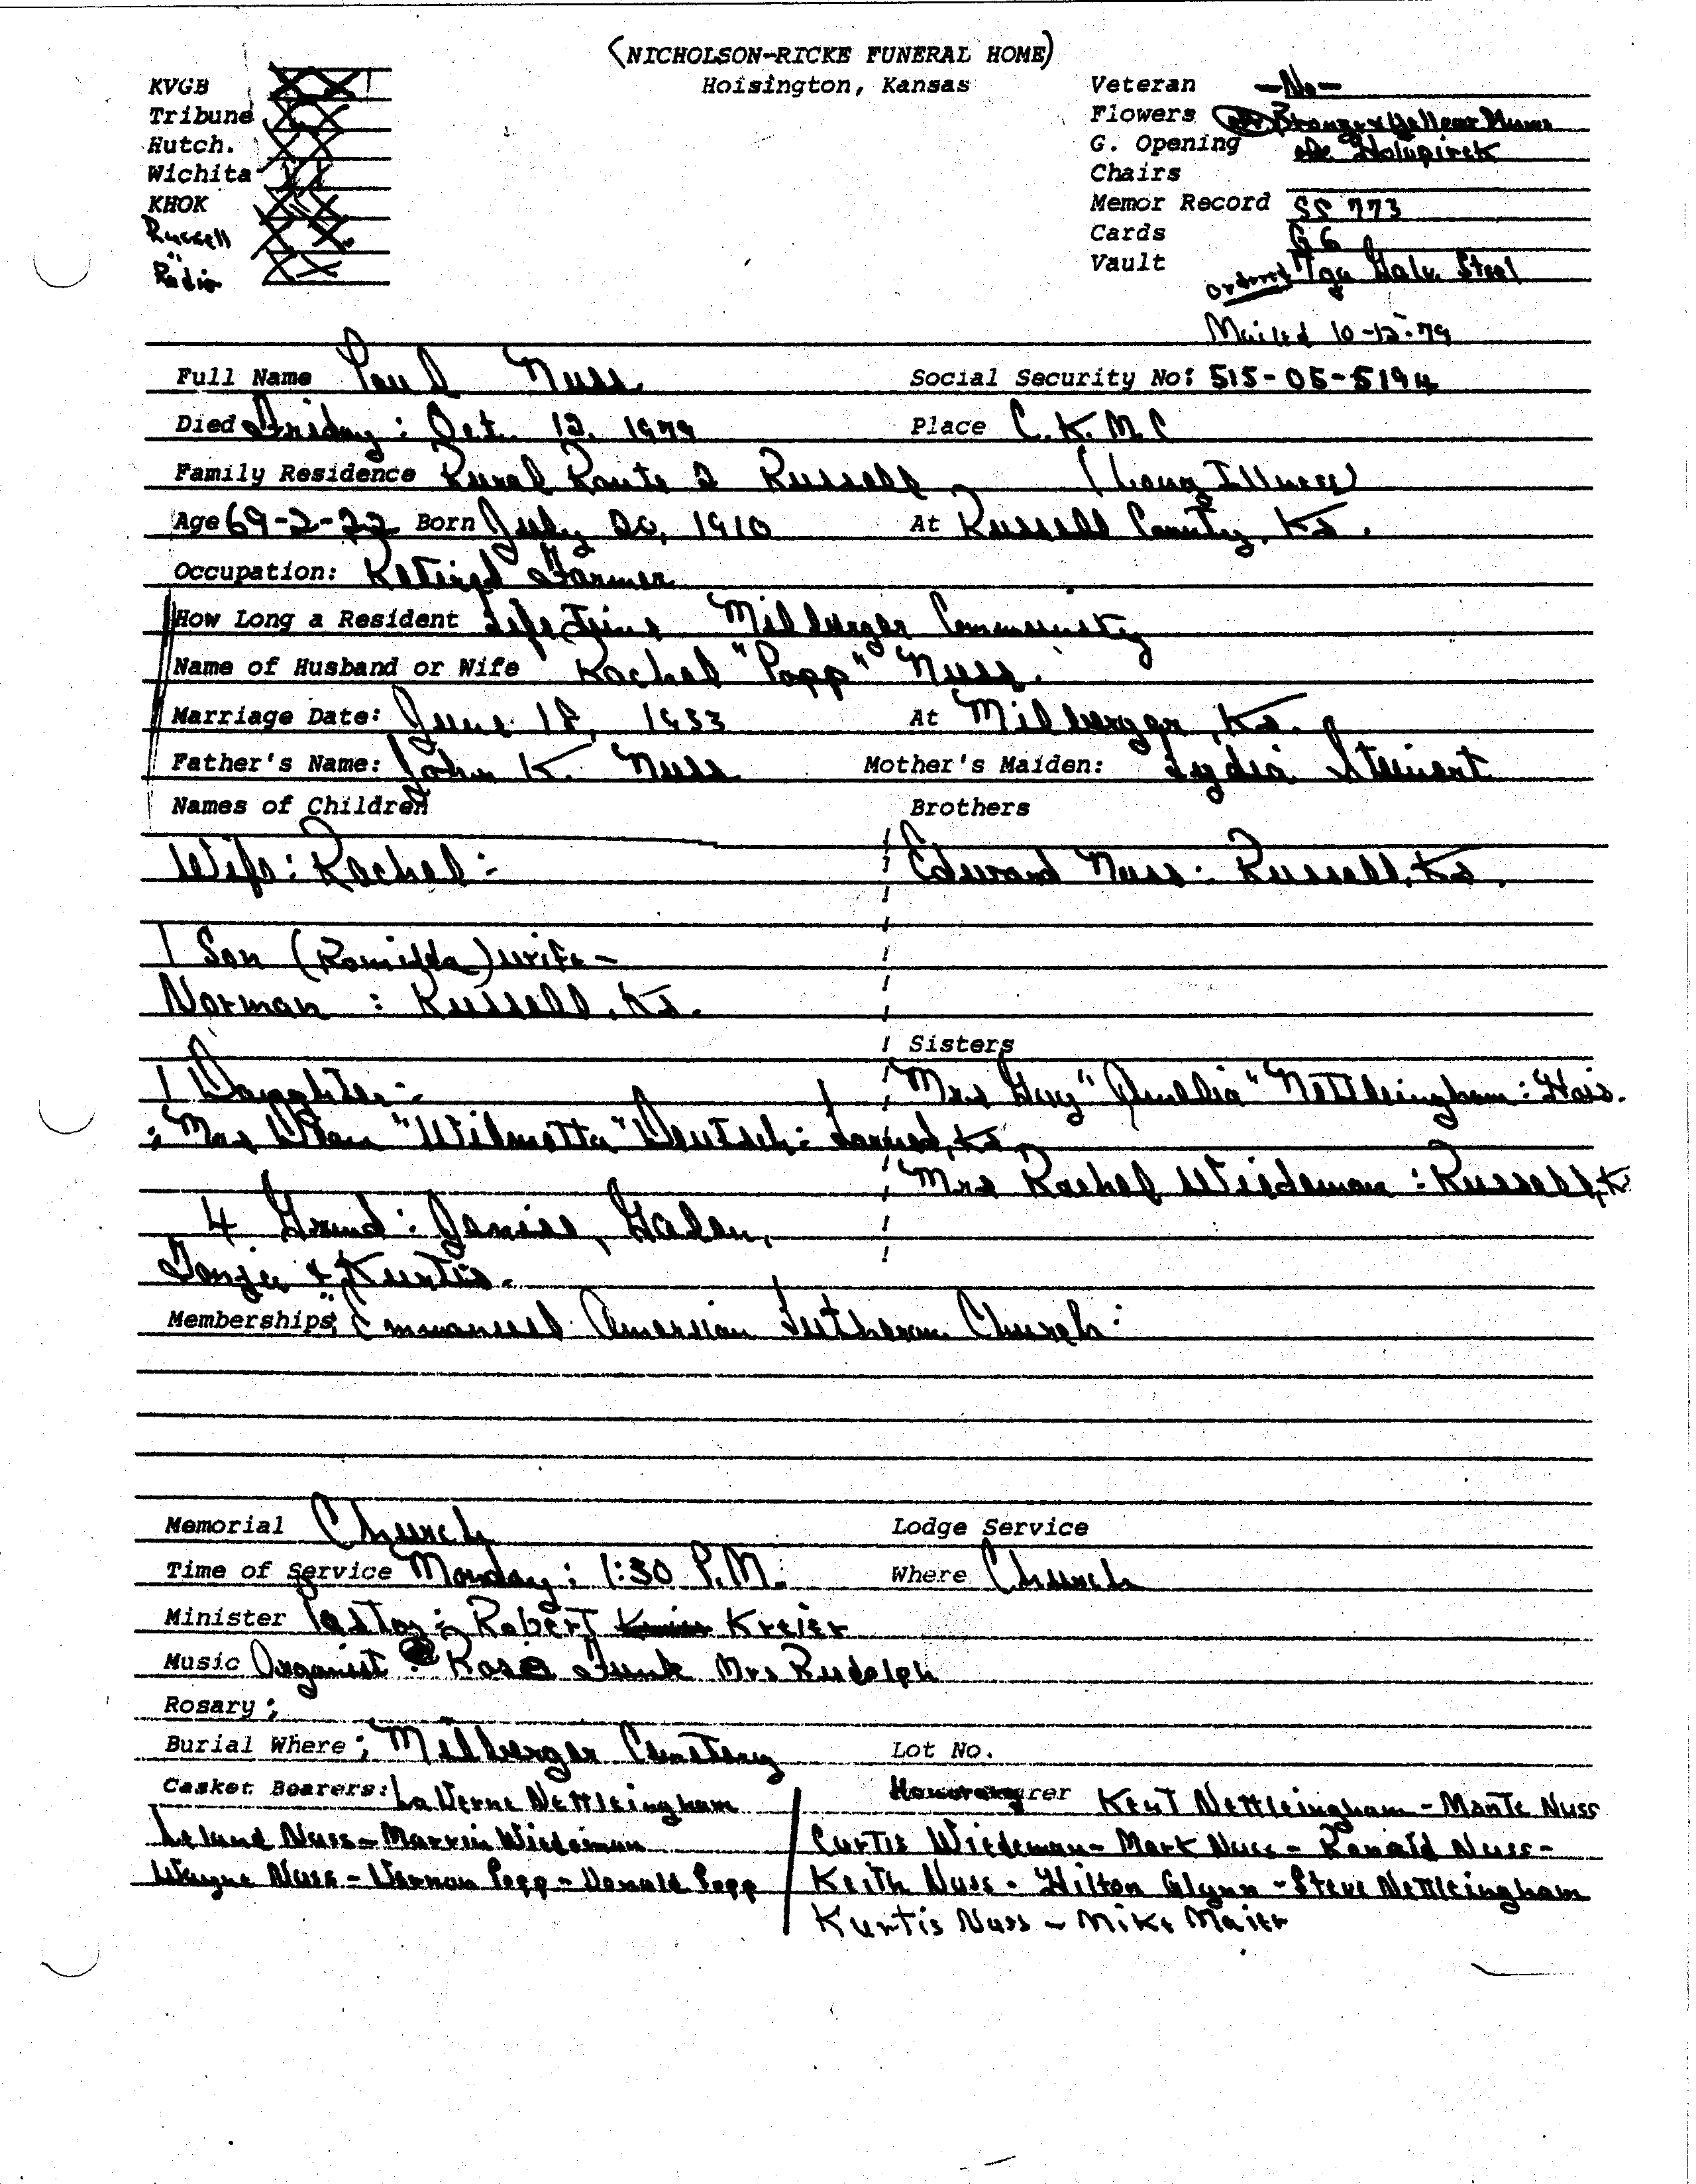 (NICHOLSON-RICKE FUNERAL HOME)
Hoisington, Kansas
KVGB
Tribune
Hutch.
Wichita
KHOK
Russell
" Radio
Veteran -No-
Flowers Bronze & Yellow Mums
G. Opening Holopirek
Chairs
Memor Record SS 773
Cards G 6
Vault ordered 7ga Galv. Steel
Mailed 10-12-79
Full Name Paul Nuss Social Security No: 515-05-5194
Died Friday: Oct. 12, 1979 Place C.K.M.C
Family Residence Rural Route 2 Russell (Long Illness)
Age 69-2-22 Born July 20, 1910 At Russell County, Ks.
Occupation: Retired Farmer
How Long a Resident Life Time Milberger Community
Name of Husband or Wife Rachel "Popp" Nuss.
Marriage Date: June 18, 1933 At Milberger, Ks.
Father's Name: John K. Nuss Mother's Maiden: Lydia Steinert
Names of Children Brothers
Wife: Rachel: Edward Nuss: Russell, Ks.
1 Son wife-
Norman : Russell, Ks.
Sisters
1 Daughter- Mrs Guy "Amelia" Nettleingham: Hois.
: Mrs "Wilmetta" Deutsch: Larned, Ks
Mrs Rachel Wiedeman: Russell, K
4 Grand: Janise, Galen,
Tonja & Kurtis.
Memberships: Emmanuel American Lutheran Church:
Memorial Church Lodge Service
Time of Service Monday: 1:30 P.M. Where Church
Minister Pastor: Robert Kreier
Music Organist: Rose Funk Mrs Rudolph
Rosary:
Burial Where: Milberger Cemetery Lot No.
Casket Bearers: LaVerne Nettleingham rer Kent Nettleingham - Monte Nuss
Leland Nuss - Marvin Wiedeman Curtis Wiedeman - Mark Nuss - Ronald Nuss -
Wayne Nuss - Vernon Popp - Donald Popp Keith Nuss - Hilton Glynn - Steve Nettleingham
Kurtis Nuss - Mike Maier